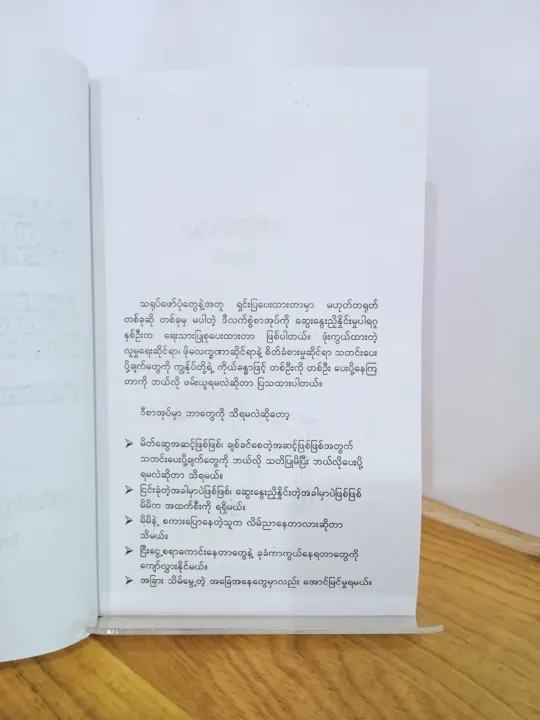 သရုပ်ဖော်ပုံတွေနဲ့အတူ ရှင်းပြပေးထားတာမှာ မဟုတ်တရုတ်
တစ်ခုဆို တစ်ခုမှ မပါတဲ့ ဒီလက်စွဲစာအုပ်ကို ဆွေးနွေးညှိနှိုင်းမှုပါရဂူ
နှစ်ဦးက ရေးသားပြုစုပေးထားတာ ဖြစ်ပါတယ်။ ဖုံးကွယ်ထားတဲ့
လူမှုရေးဆိုင်ရာ၊ ဖိုမလက္ခဏာဆိုင်ရာနဲ့ စိတ်ခံစားမှုဆိုင်ရာ သတင်းပေး
ပို့ချက်တွေကို ကျွန်ုပ်တို့ရဲ့ ကိုယ်ခန္ဓာဖြင့် တစ်ဦးကို တစ်ဦး ပေးပို့နေကြ
တာကို ဘယ်လို ဖမ်းယူရမလဲဆိုတာ ပြသထားပါတယ်။
ဒီစာအုပ်မှာ ဘာတွေကို သိရမလဲဆိုတော့
➤ မိတ်ဆွေအဆင့်ဖြစ်ဖြစ်၊ ချစ်ခင်စေတဲ့အဆင့်ဖြစ်ဖြစ်အတွက်
သတင်းပေးပို့ချက်တွေကို ဘယ်လို သတိပြုမိပြီး ဘယ်လိုပေးပို့
ရမလဲဆိုတာ သိရမယ်။
➤ ငြင်းခုံတဲ့အခါမှာပဲဖြစ်ဖြစ်၊ ဆွေးနွေးညှိနှိုင်းတဲ့အခါမှာပဲဖြစ်ဖြစ်
မိမိက အထက်စီးကို ရရှိမယ်။
➤ မိမိနဲ့ စကားပြောနေတဲ့သူက လိမ်ညာနေတာလားဆိုတာ
သိမယ်။
➤ ငြီးငွေ့စရာကောင်းနေတာတွေနဲ့ ခုခံကာကွယ်နေရတာတွေကို
ကျော်လွှားနိုင်မယ်။
➤ အခြား သိမ်မွေ့တဲ့ အခြေအနေတွေမှာလည်း အောင်မြင်မှုရမယ်။